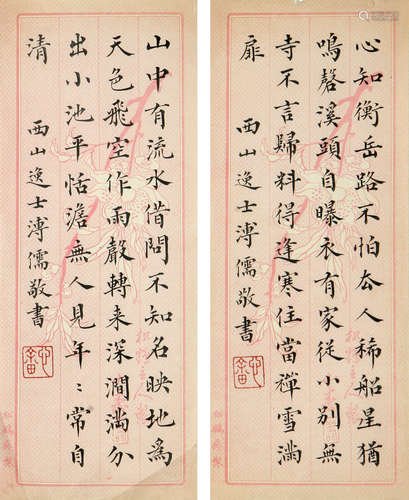 心知衡岳路不怕去人稀船里猶
鳴磬溪頭自曝衣有家從小別無
寺不言歸料得逢寒住當禪雪滿
扉
西山逸士溥儒敬書
心畬
山中有流水借問不知名映地為
天色飛空作雨聲轉来深澗滿分
出小池平恬澹無人見年〻常自
清
西山逸士溥儒敬書
心畬